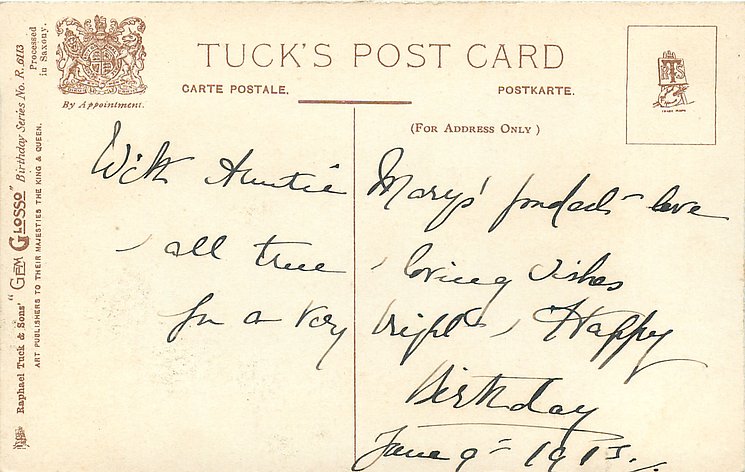 TUCK'S POST CARD
CARTE POSTALE.
POSTKARTE.
(FOR ADDRESS ONLY)
By Appointment.
TRADE MARK
With Auntie Marys' fondest love
, all true , loving wishes
for a very bright , Happy
Birthday
June 9th 1913.
Raphael Tuck & Sons' "GEM GLOSSO" Birthday Series No. R. 6113
Processed
in Saxony.
ART PUBLISHERS TO THEIR MAJESTIES THE KING & QUEEN.